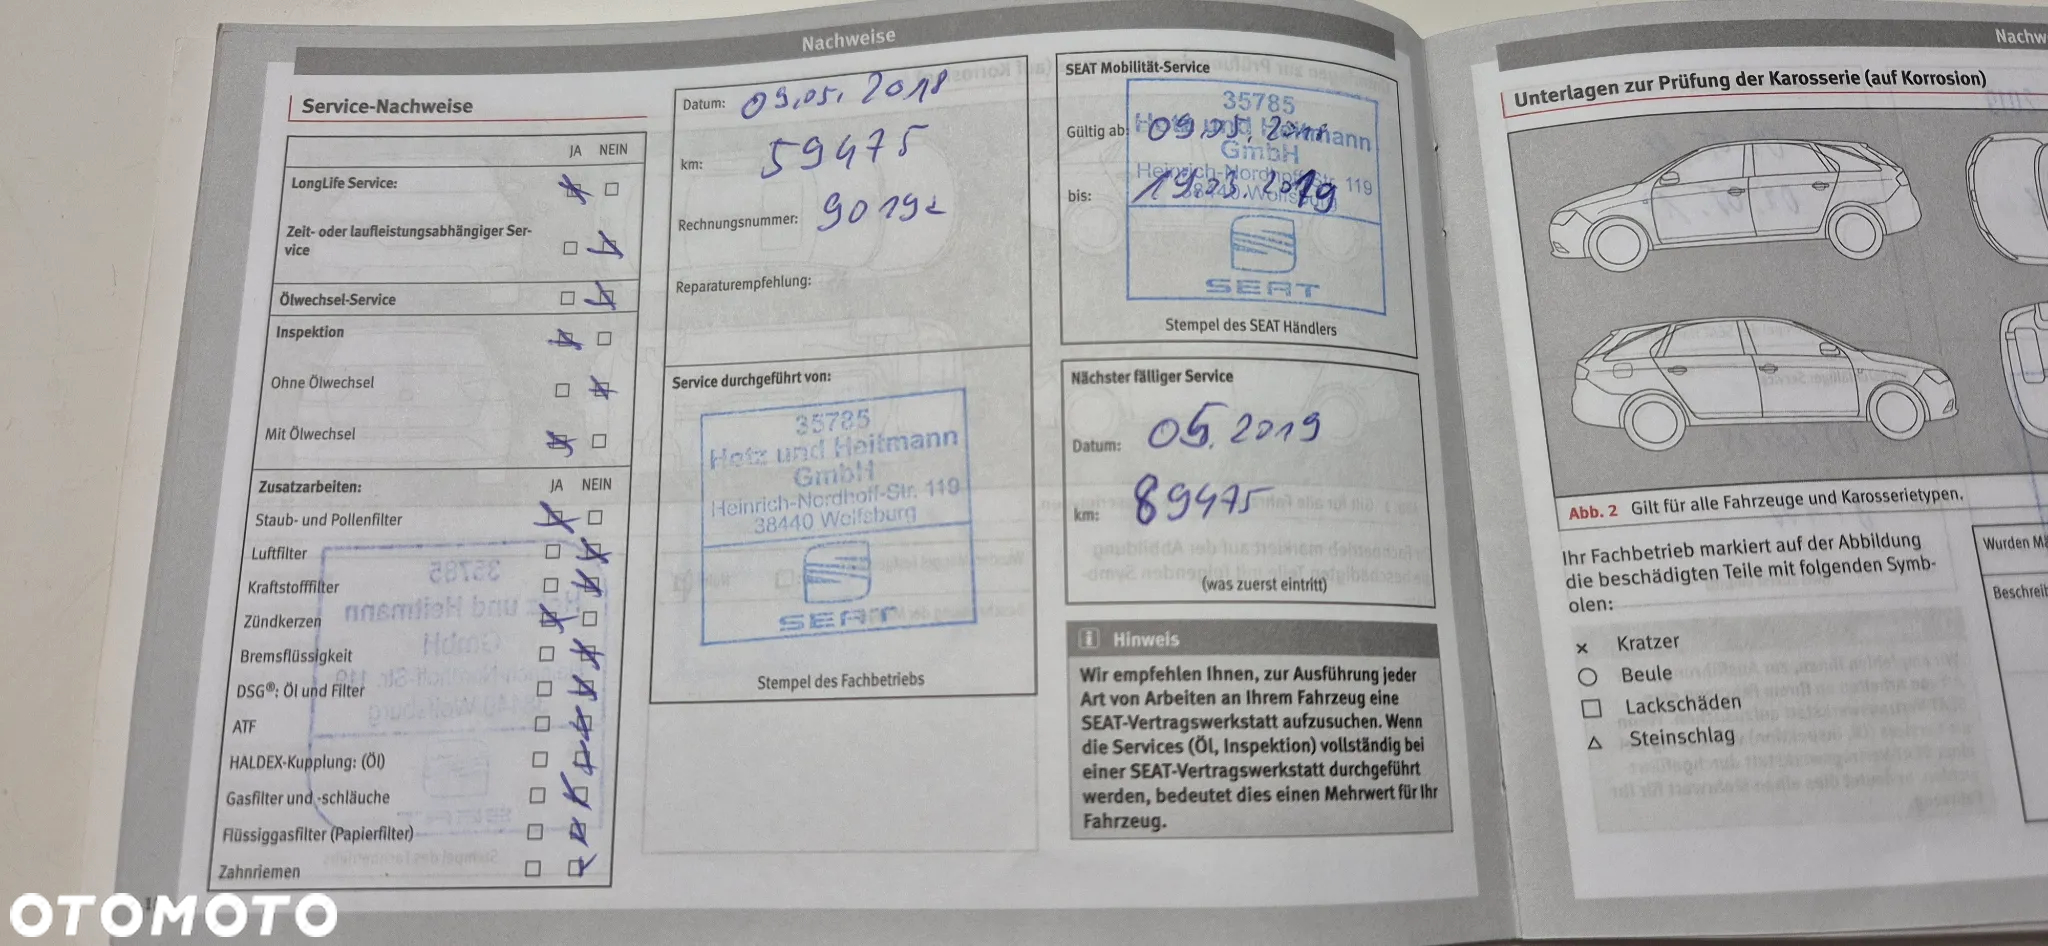 Nachweise
Service-Nachweise
JA NEIN
LongLife Service:
Zeit- oder laufleistungsabhängiger Ser-
vice
Ölwechsel-Service
Inspektion
Ohne Ölwechsel
Mit Ölwechsel
Zusatzarbeiten: JA NEIN
Staub- und Pollenfilter
Luftfilter
Kraftstofffilter
Zündkerzen
Bremsflüssigkeit
DSG®: Öl und Filter
ATF
HALDEX-Kupplung: (Öl)
Gasfilter und -schläuche
Flüssiggasfilter (Papierfilter)
Zahnriemen
Datum: 09.05. 2018
km: 59475
Rechnungsnummer: 90192
Reparaturempfehlung:
Service durchgeführt von:
35785
Hotz und Heitmann
GmbH
Heinrich-Nordhoff-Str. 119
38440 Wolfsburg
SEAT
Stempel des Fachbetriebs
SEAT Mobilität-Service
35785
Hotz und Heitmann
GmbH
Heinrich-Nordhoff-Str. 119
38440 Wolfsburg
SEAT
Gültig ab: 09.05.
bis: 2019
Stempel des SEAT Händlers
Nächster fälliger Service
Datum: 05. 2019
km: 89475
(was zuerst eintritt)
i Hinweis
Wir empfehlen Ihnen, zur Ausführung jeder
Art von Arbeiten an Ihrem Fahrzeug eine
SEAT-Vertragswerkstatt aufzusuchen. Wenn
die Services (Öl, Inspektion) vollständig bei
einer SEAT-Vertragswerkstatt durchgeführt
werden, bedeutet dies einen Mehrwert für Ihr
Fahrzeug.
Nachw
Unterlagen zur Prüfung der Karosserie (auf Korrosion)
Abb. 2 Gilt für alle Fahrzeuge und Karosserietypen.
Ihr Fachbetrieb markiert auf der Abbildung
die beschädigten Teile mit folgenden Symb-
olen:
Kratzer
Beule
Lackschäden
Steinschlag
Wurden Mä
Beschreib
OTOMOTO